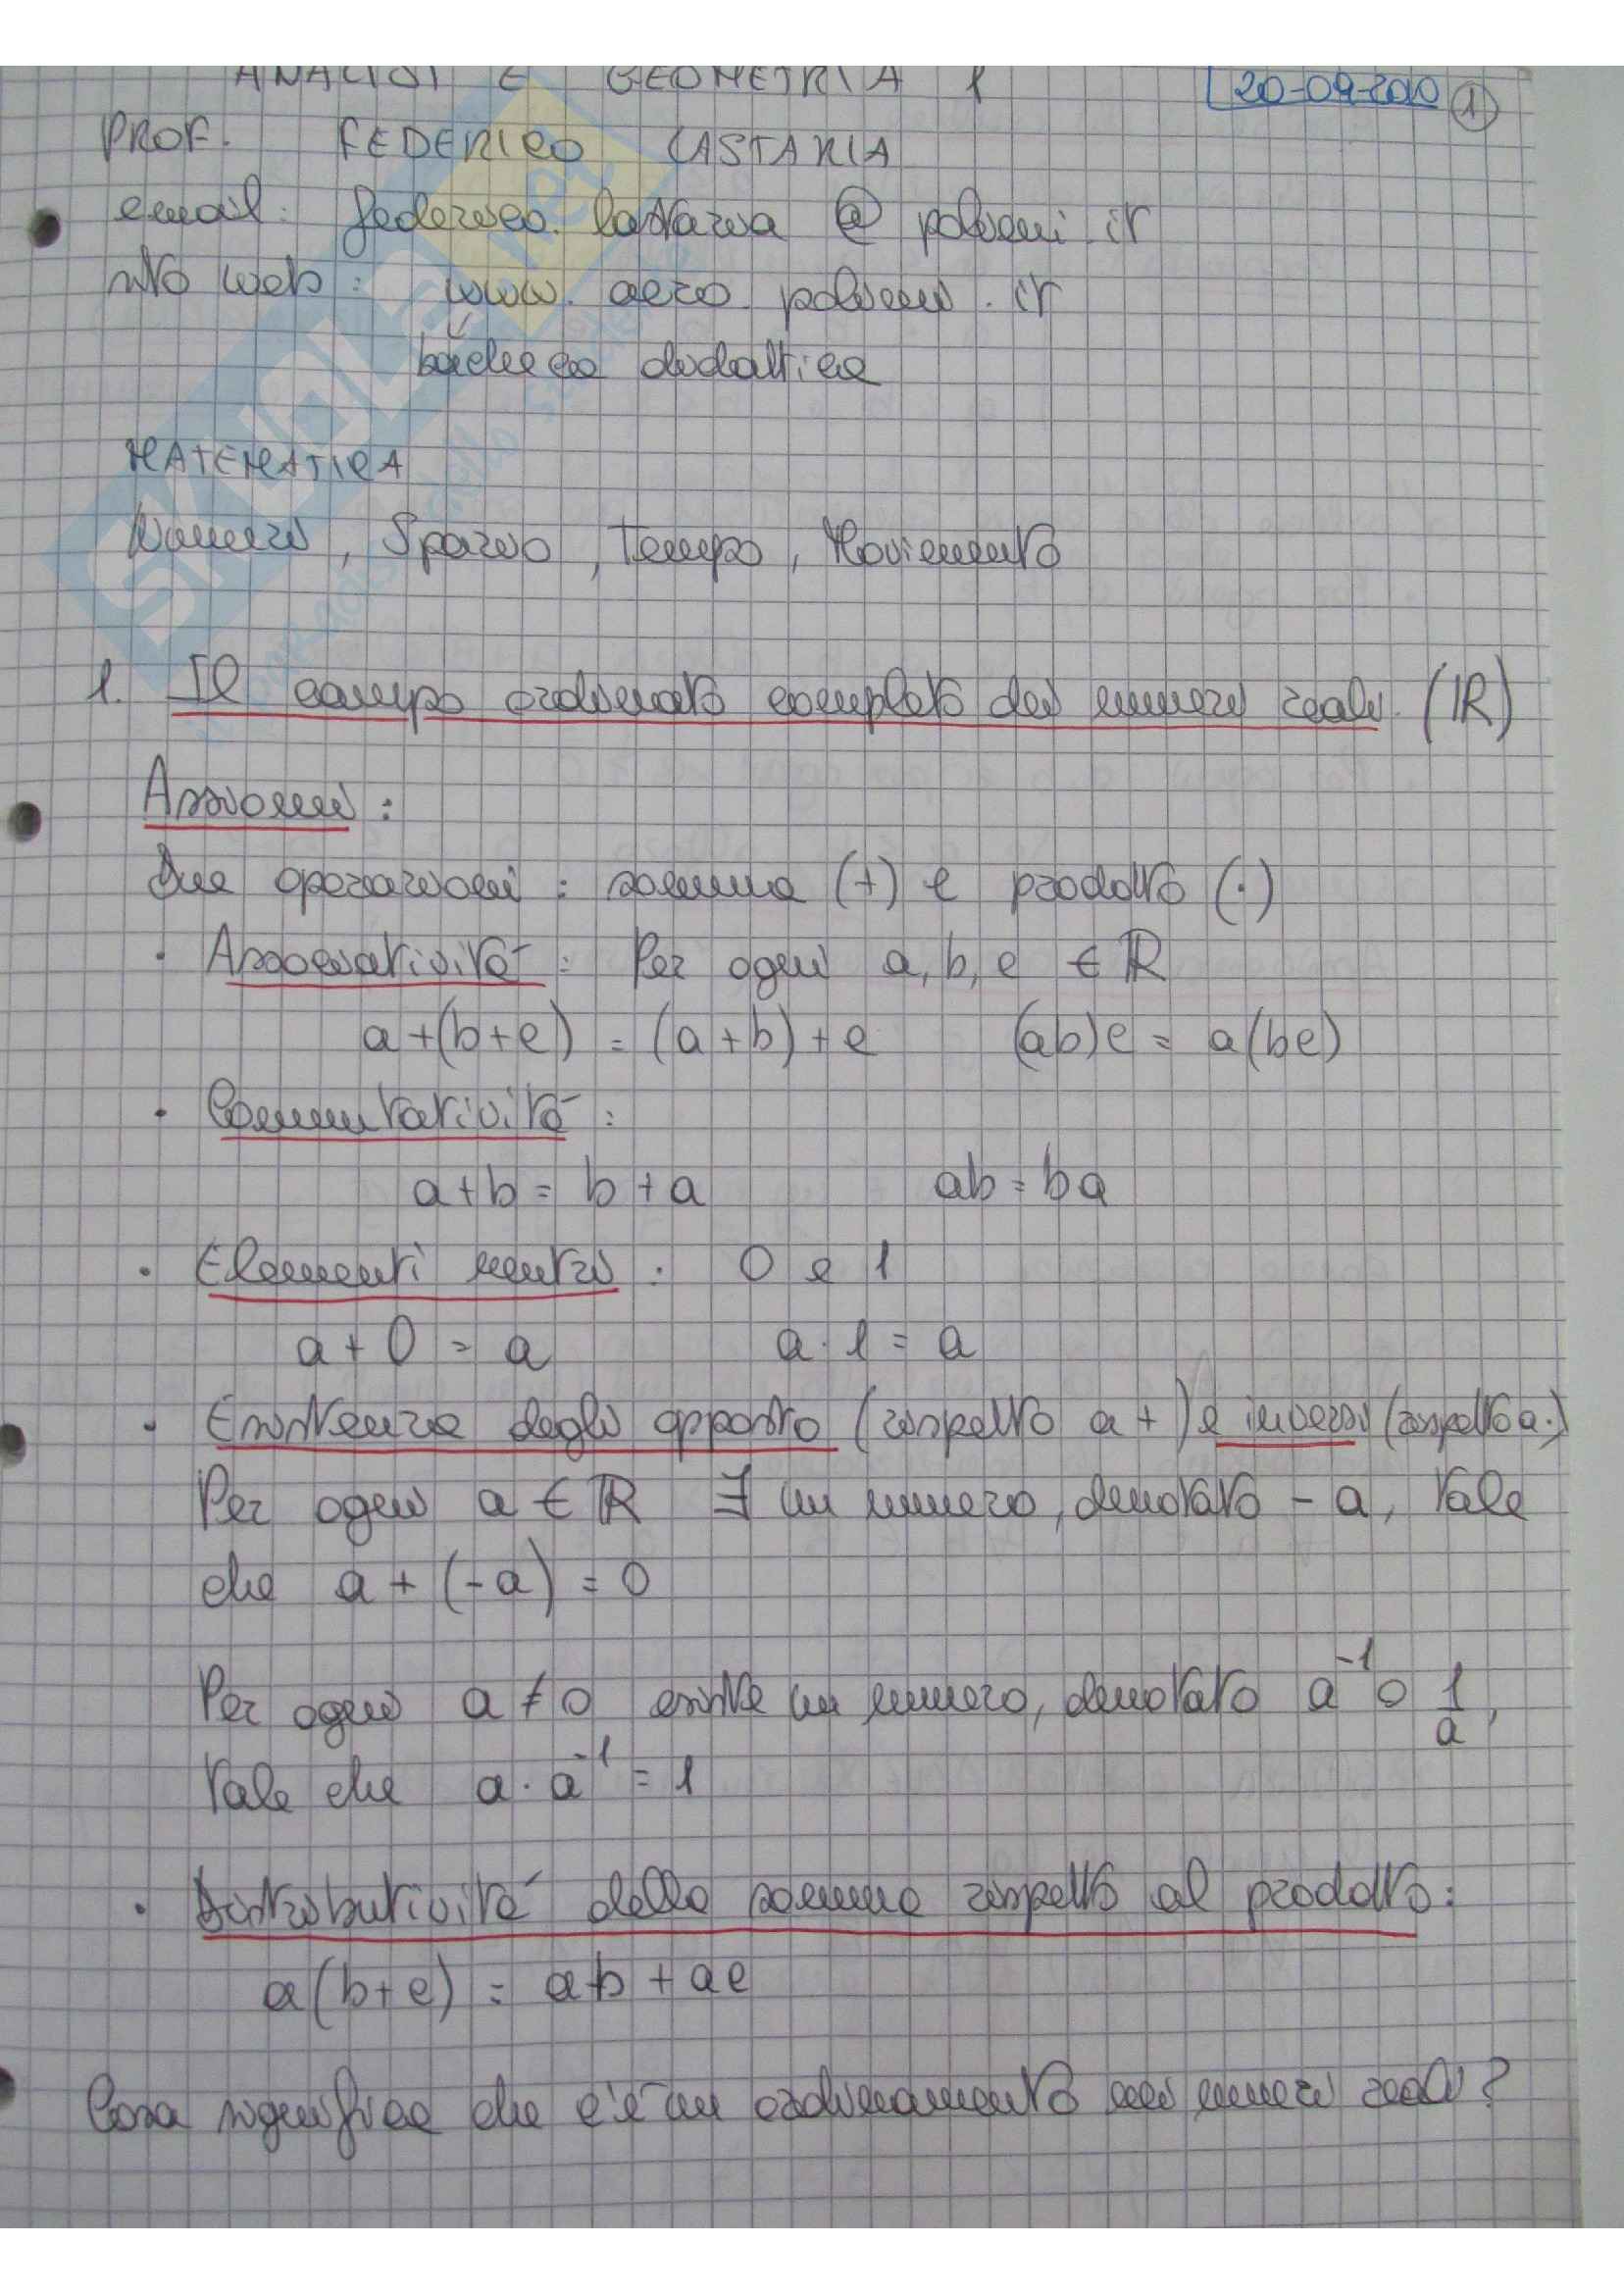 ANALISI E GEOMETRIA 1
20-09-2010 1
PROF. FEDERICO LASTARIA
email: federico.lastaria @ polimi.it
sito web: www.aero.polimi.it
bacheca didattica
MATEMATICA
Numero, Spazio, Tempo, Movimento
1. Il campo ordinato completo dei numeri reali. (ℝ)
Assiomi:
Due operazioni: somma (+) e prodotto (·)
· Associatività: Per ogni a, b, c ∈ ℝ
a+(b+c) = (a+b)+c (ab)c = a(bc)
· Commutatività:
a+b = b+a ab = ba
· Elementi neutri: 0 e 1
a+0 = a a·1 = a
· Esistenza degli opposto (rispetto a +) e inversi (rispetto a ·)
Per ogni a ∈ ℝ ∃ un numero, denotato -a, tale
che a+(-a) = 0
Per ogni a ≠ 0 esiste un numero, denotato a⁻¹ o 1/a,
tale che a·a⁻¹ = 1
· Distributività della somma rispetto al prodotto:
a(b+c) = ab+ac
Cosa significa che c'è un ordinamento nei numeri reali?
SKUOLA.net